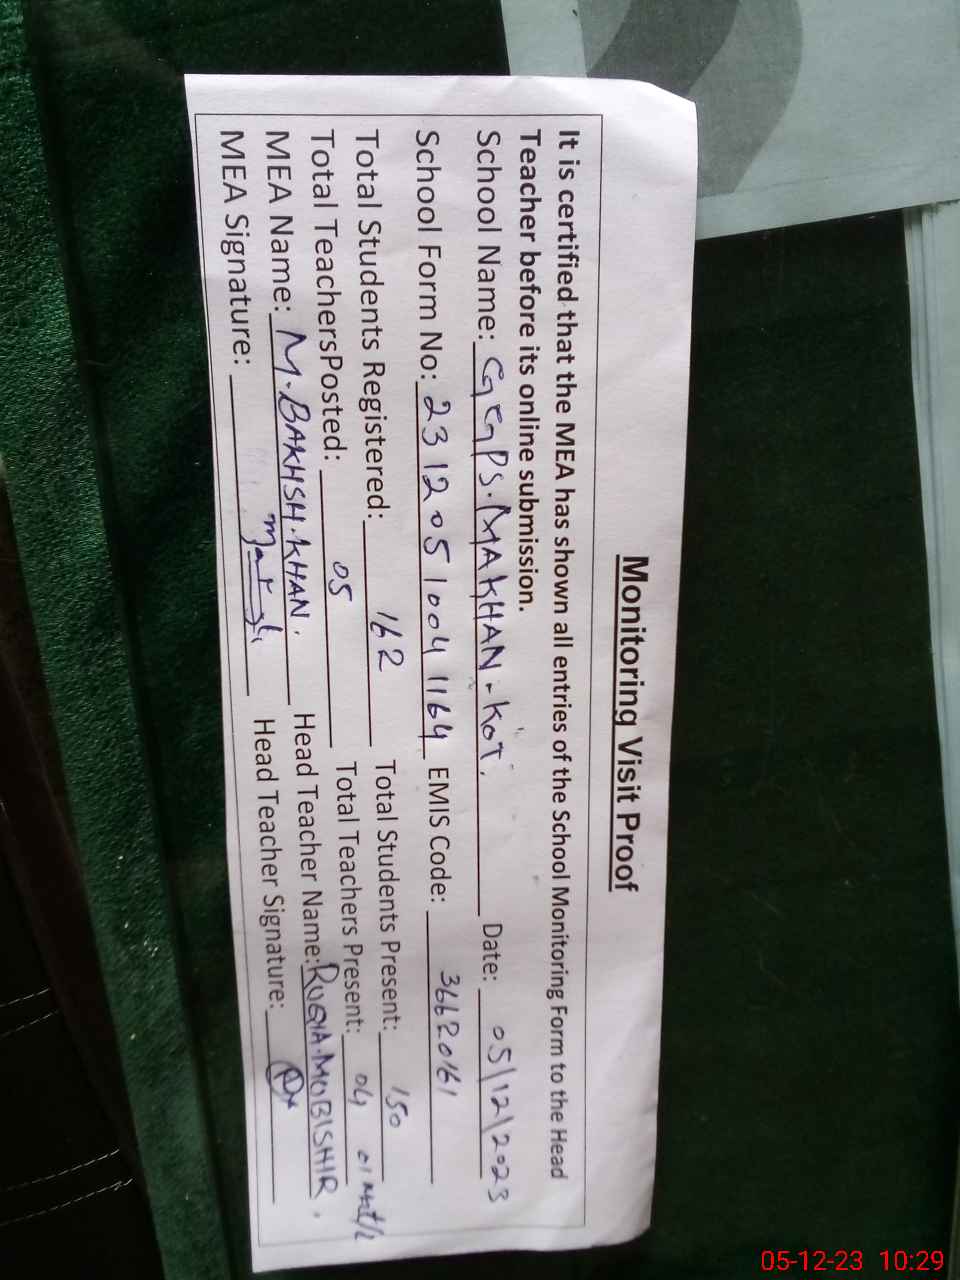 Monitoring Visit Proof
It is certified that the MEA has shown all entries of the School Monitoring Form to the Head
Teacher before its online submission.
School Name: GGPS. MAKHAN - KOT. Date: 05/12/2023
School Form No: 23120510041164 EMIS Code: 36620161
Total Students Registered: 162 Total Students Present: 150
Total TeachersPosted: 05 Total Teachers Present: 04 01
MEA Name: M. BAKHSH. KHAN. Head Teacher Name: RUQIA. MOBISHIR.
MEA Signature: Head Teacher Signature:
05-12-23 10:29